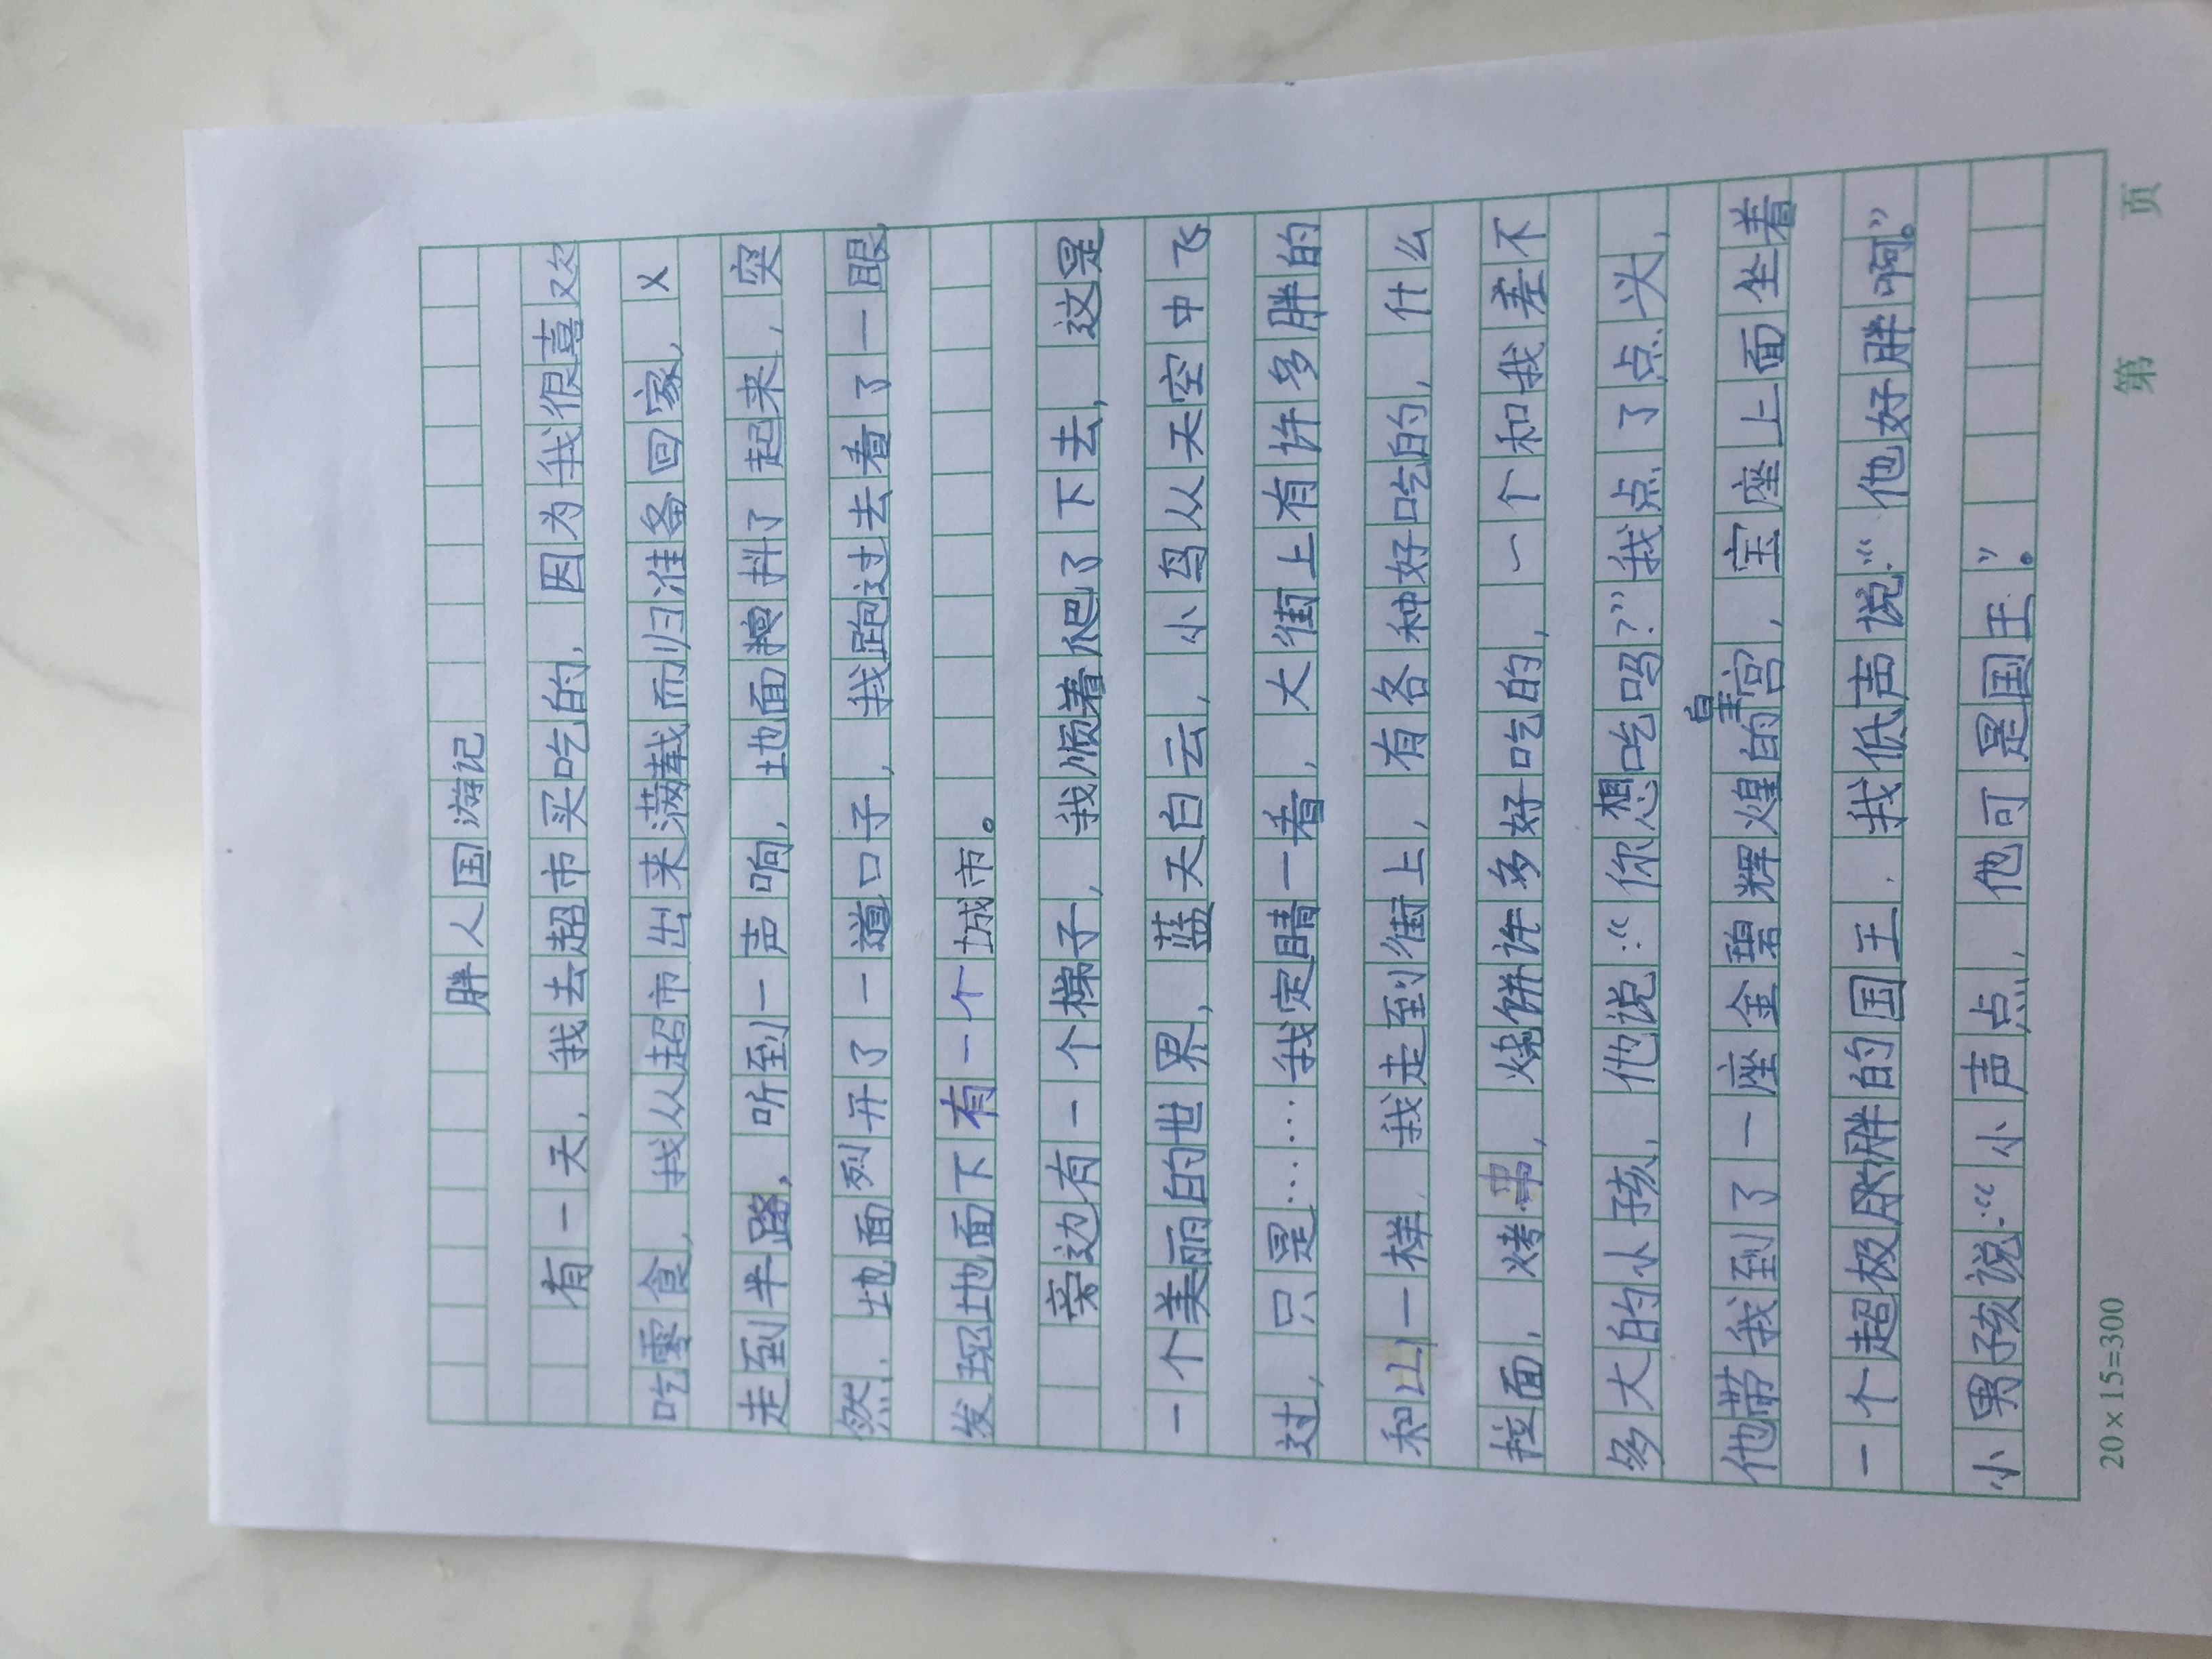 胖人国游记
有一天，我去超市买吃的，因为我很喜欢
吃零食，我从超市出来满载而归准备回家，
走到半路，听到一声响，地面抖了起来，突
然，地面列开了一道口子，我跑过去看了一眼，
发现地面下有一个城市。
旁边有一个梯子，我顺着爬了下去，这是
一个美丽的世界，蓝天白云，小鸟从天空中飞
过，只是……我定睛一看，大街上有许多胖的
和山一样，我走到街上，有各种好吃的，什么
拉面，烤串，烧饼许多好吃的，一个和我差不
多大的小孩，他说：“你想吃吗？”我点了点头，
他带我到了一座金碧辉煌的皇宫，宝座上面坐着
一个超极胖胖的国王，我低声说：“他好胖啊。”
小男孩说：“小声点，他可是国王。”
20×15=300 第 页